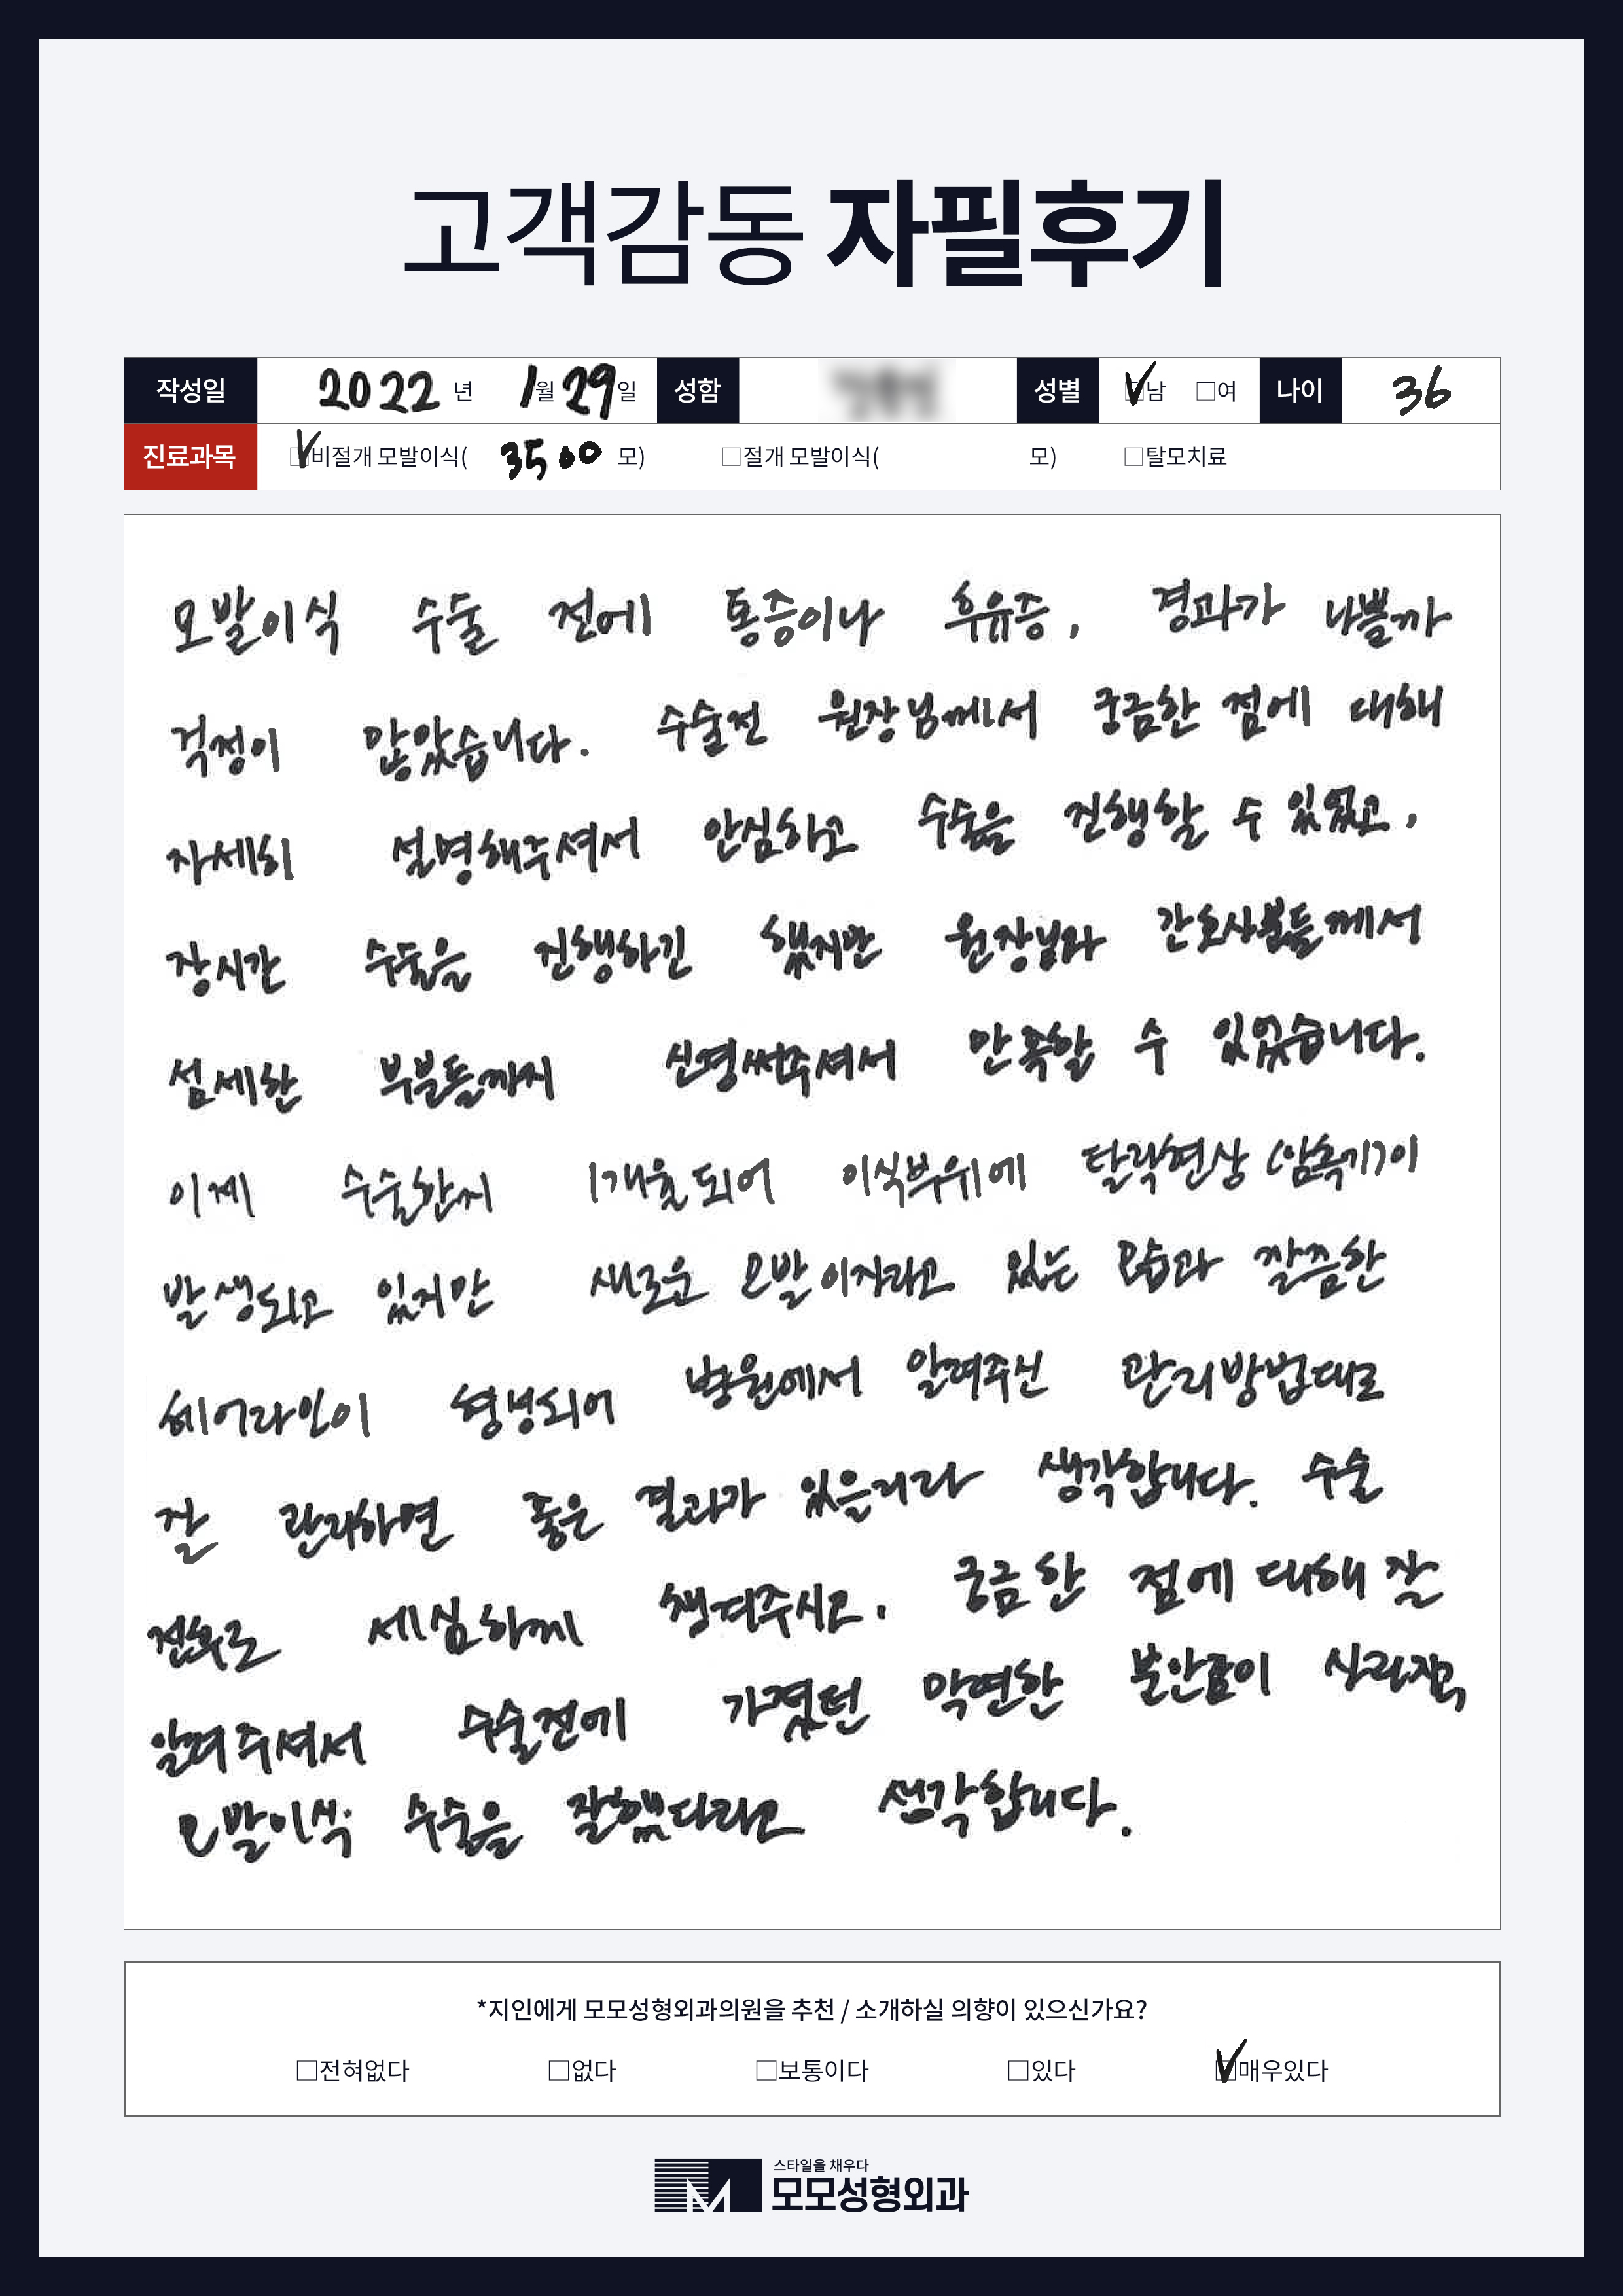 고객감동 자필후기
작성일 2022 년 1월 29일 성함 성별 ☑남 □여 나이 36
진료과목 ☑비절개 모발이식( 3500 모) □절개 모발이식( 모) □탈모치료
모발이식 수술 전에 통증이나 후유증, 경과가 나쁠까
걱정이 많았습니다. 수술전 원장님께서 궁금한 점에 대해
자세히 설명해주셔서 안심하고 수술을 진행할 수 있었고,
장시간 수술을 진행하긴 했지만 원장님과 간호사분들께서
섬세한 부분들까지 신경써주셔서 만족할 수 있었습니다.
이제 수술한지 1개월 되어 이식부위에 탈락현상 (암흑기)이
발생되고 있지만 새로운 모발이자라고 있는 모습과 깔끔한
헤어라인이 형성되어 병원에서 알려주신 관리방법대로
잘 관리하면 좋은 결과가 있을리라 생각합니다. 수술
전후로 세심하게 챙겨주시고, 궁금한 점에 대해 잘
알려주셔서 수술전에 가졌던 막연한 불안함이 사라졌고,
모발이식 수술을 잘했다라고 생각합니다.
*지인에게 모모성형외과의원을 추천 / 소개하실 의향이 있으신가요?
□전혀없다 □없다 □보통이다 □있다 ☑매우있다
스타일을 채우다
모모성형외과